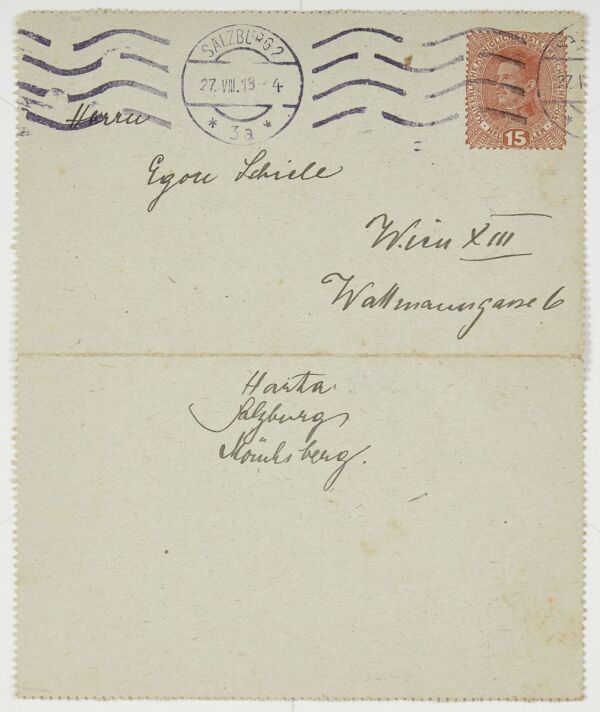 SALZBURG 2
27. VIII. 18 - 4
* 3a *
15
Herrn
Egon Schiele
Wien XIII
Wattmanngasse 6
Harta
Salzburg
Mönchsberg.